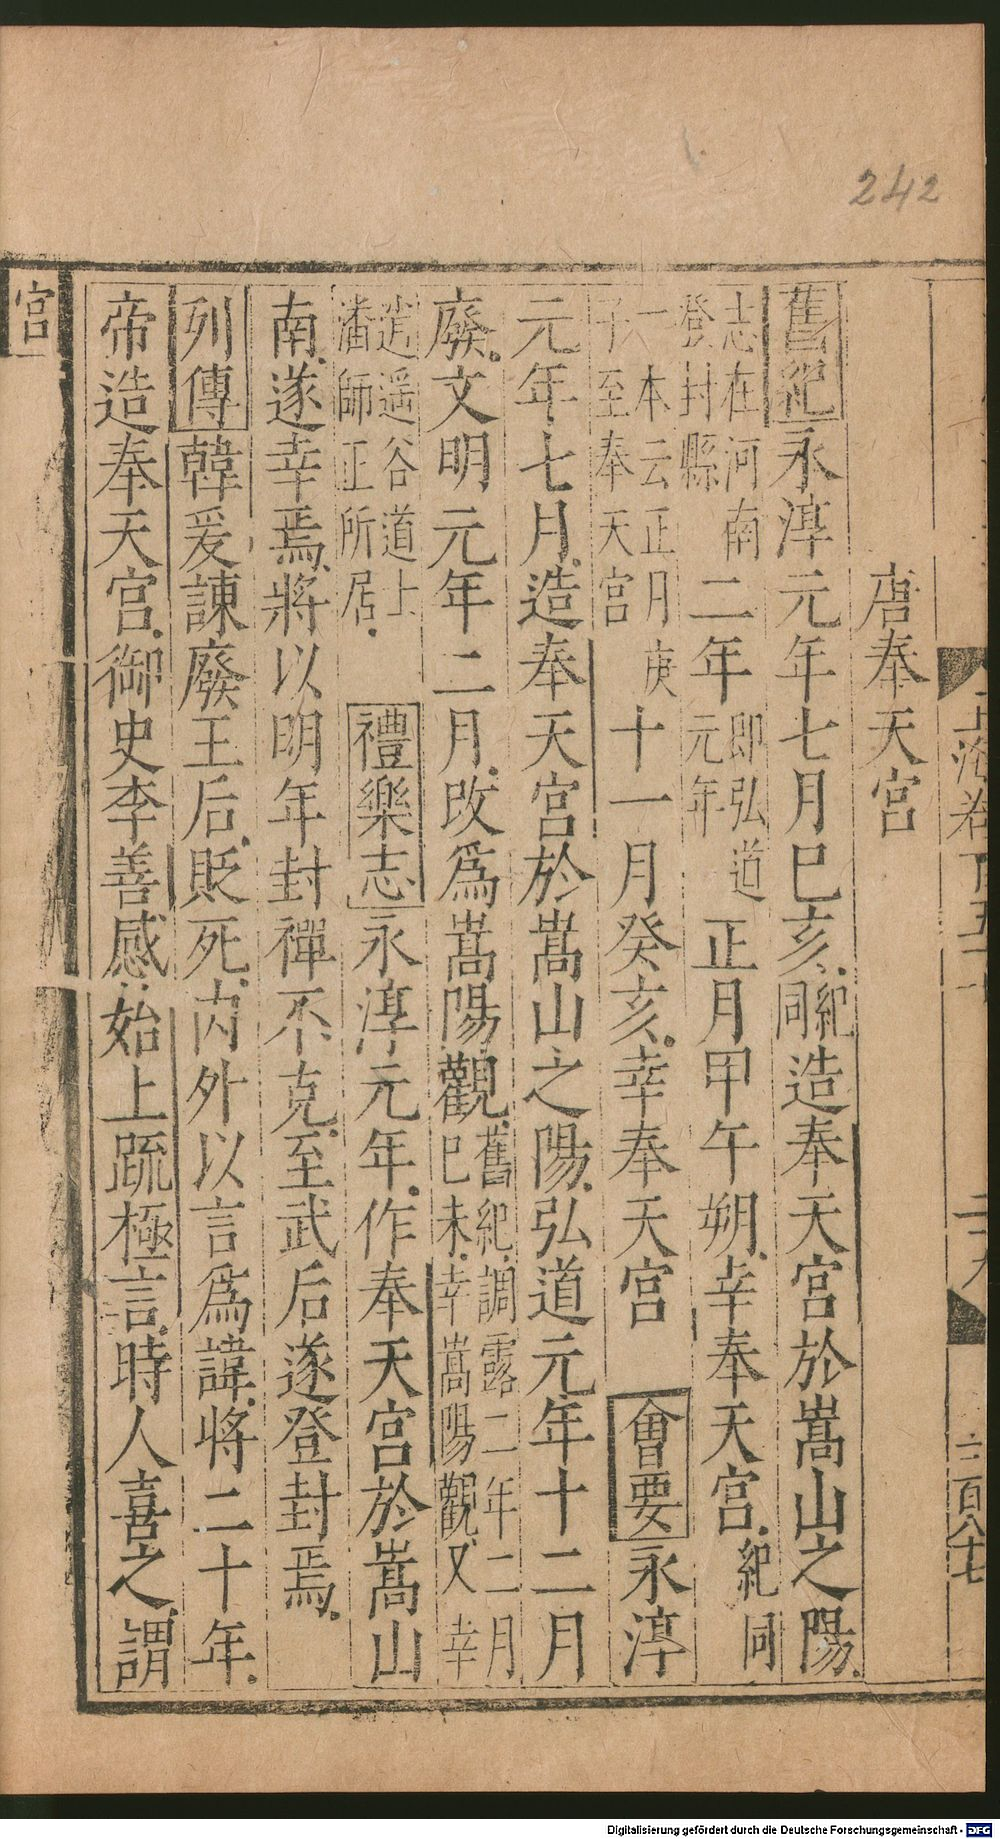 242
唐奉天宮
舊紀永淳元年七月巳亥紀同造奉天宮於嵩山之陽
志在河南登封縣二年即弘道元年正月甲午朔幸奉天宮紀同
一本云正月庚子至奉天宮十一月癸亥幸奉天宮會要永淳
元年七月造奉天宮於嵩山之陽弘道元年十二月
廢文明元年二月改爲嵩陽觀舊紀調露二年二月巳未幸嵩陽觀又幸
逍遥谷道士潘師正所居禮樂志永淳元年作奉天宮於嵩山
南遂幸焉將以明年封禪不克至武后遂登封焉
列傳韓爰諌廢王后貶死内外以言爲諱將二十年
帝造奉天宮御史李善感始上䟽極言時人喜之謂
宮
Digitalisierung gefördert durch die Deutsche Forschungsgemeinschaft - DFG